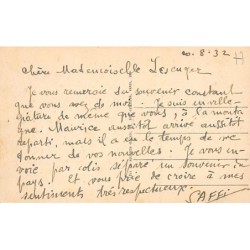 20.8.32
Chère Mademoiselle Lescuyer
Je vous remercie du souvenir constant
que vous avez de moi. Je suis en ville-
giature de même que vous, à la monta-
gne. Maurice aussitot arrivé aussitot
reparti, mais il a eu le temps de me
donner de vos nouvelles. Je vous en-
voie par colis séparé un souvenir du
pays! et vous prie de croire à mes
sentiments très respectueux.